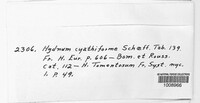 2306. Hydnum cyathiforme Schæff. Tab. 139.
Fr. H. Eur. p. 606 — Bom. et Rouss.
Cat. 112 — H. Tomentosum Fr. Syst. myc.
I. P. 49.
1008966